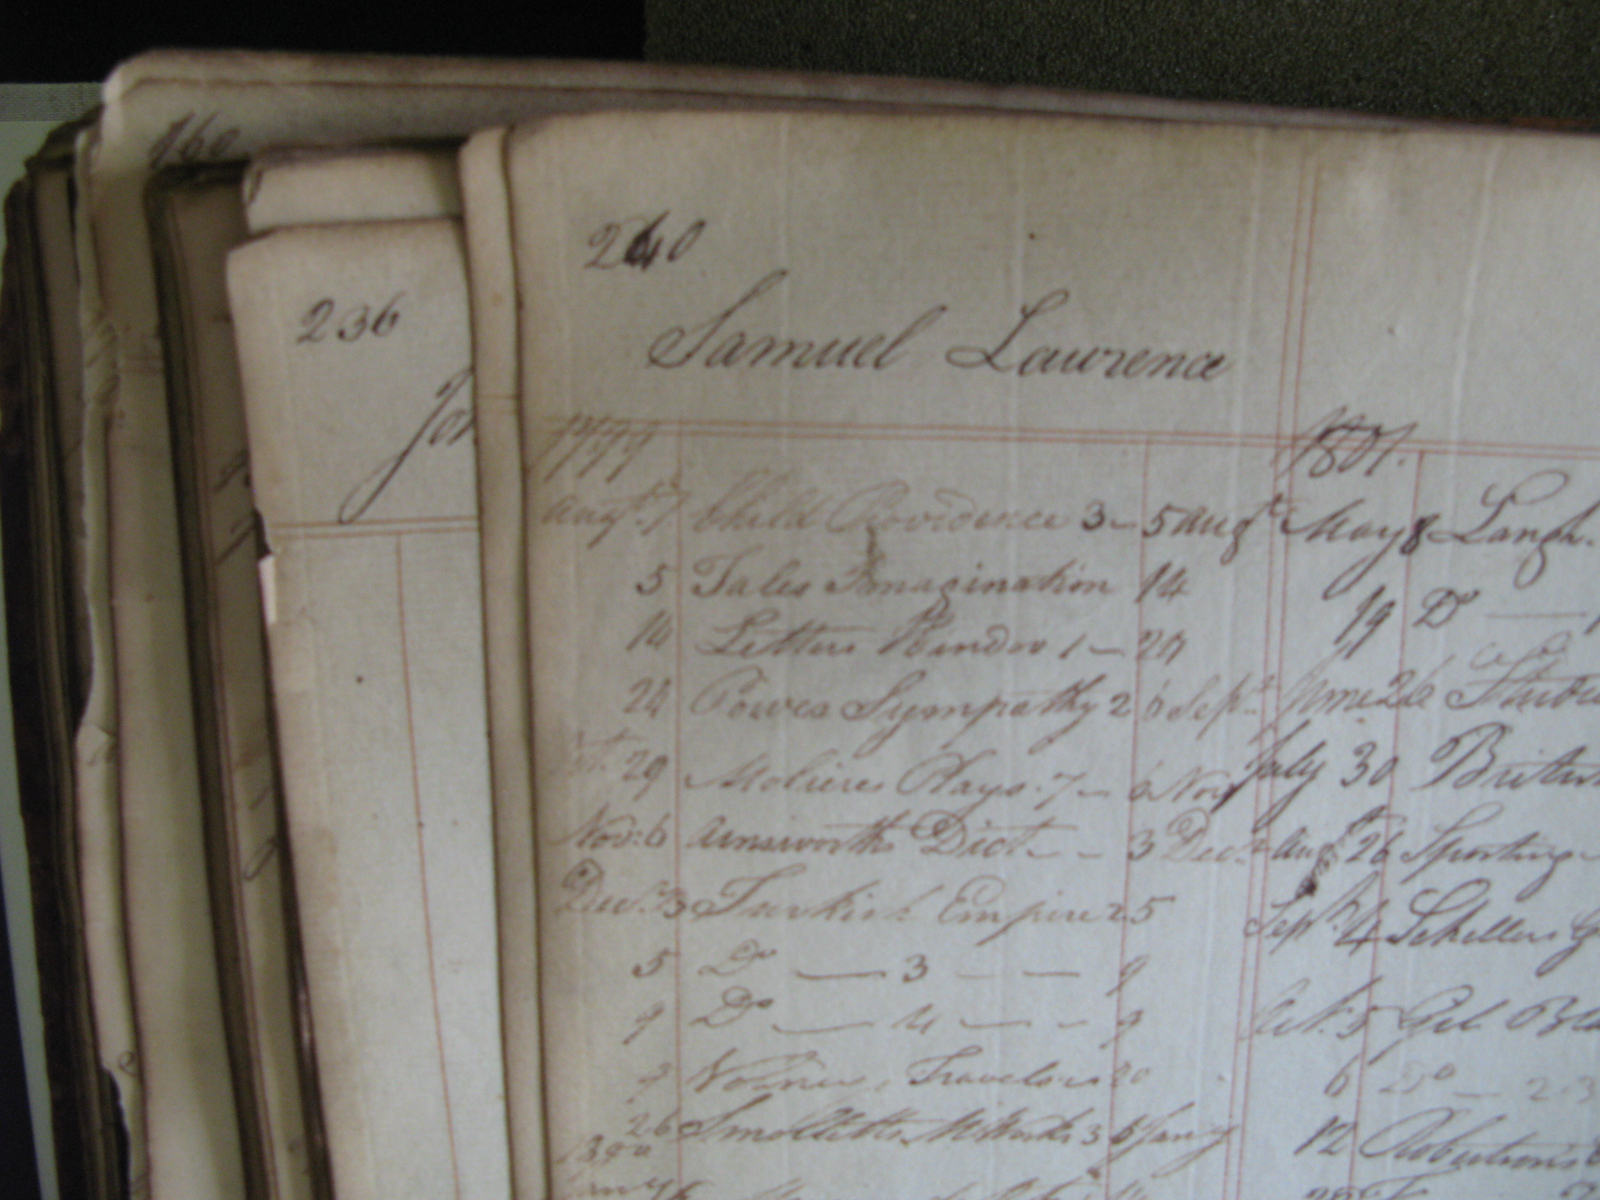 160
236
Joh
240
Samuel Lawrence
1799
Augt. 7 Child Providence 3 – 5 Augt
5 Tales Imagination 14
14 Letters Hindoo 1 – 24
24 Power Sympathy 2 6 Sepr.
29 Molieres Plays. 7 – 6 Nov
Nov: 6 Ainsworths Dict. – – 3 Decr.
Decr. 3 Turkish Empire 2 5
5 Do — 3 — — 9
9 Do — 4 — – 9
9 Volneys Travels 20
26 Smolletts Works 3 6 Jany
1800
1801.
May 8 Langh.
19 Do —
June 26
July 30 British
Augt 26 Sporting
Sept. 4 Schellers G
Oct. 5 Gil Bla
6 Do — 2.3
12 Robertsons